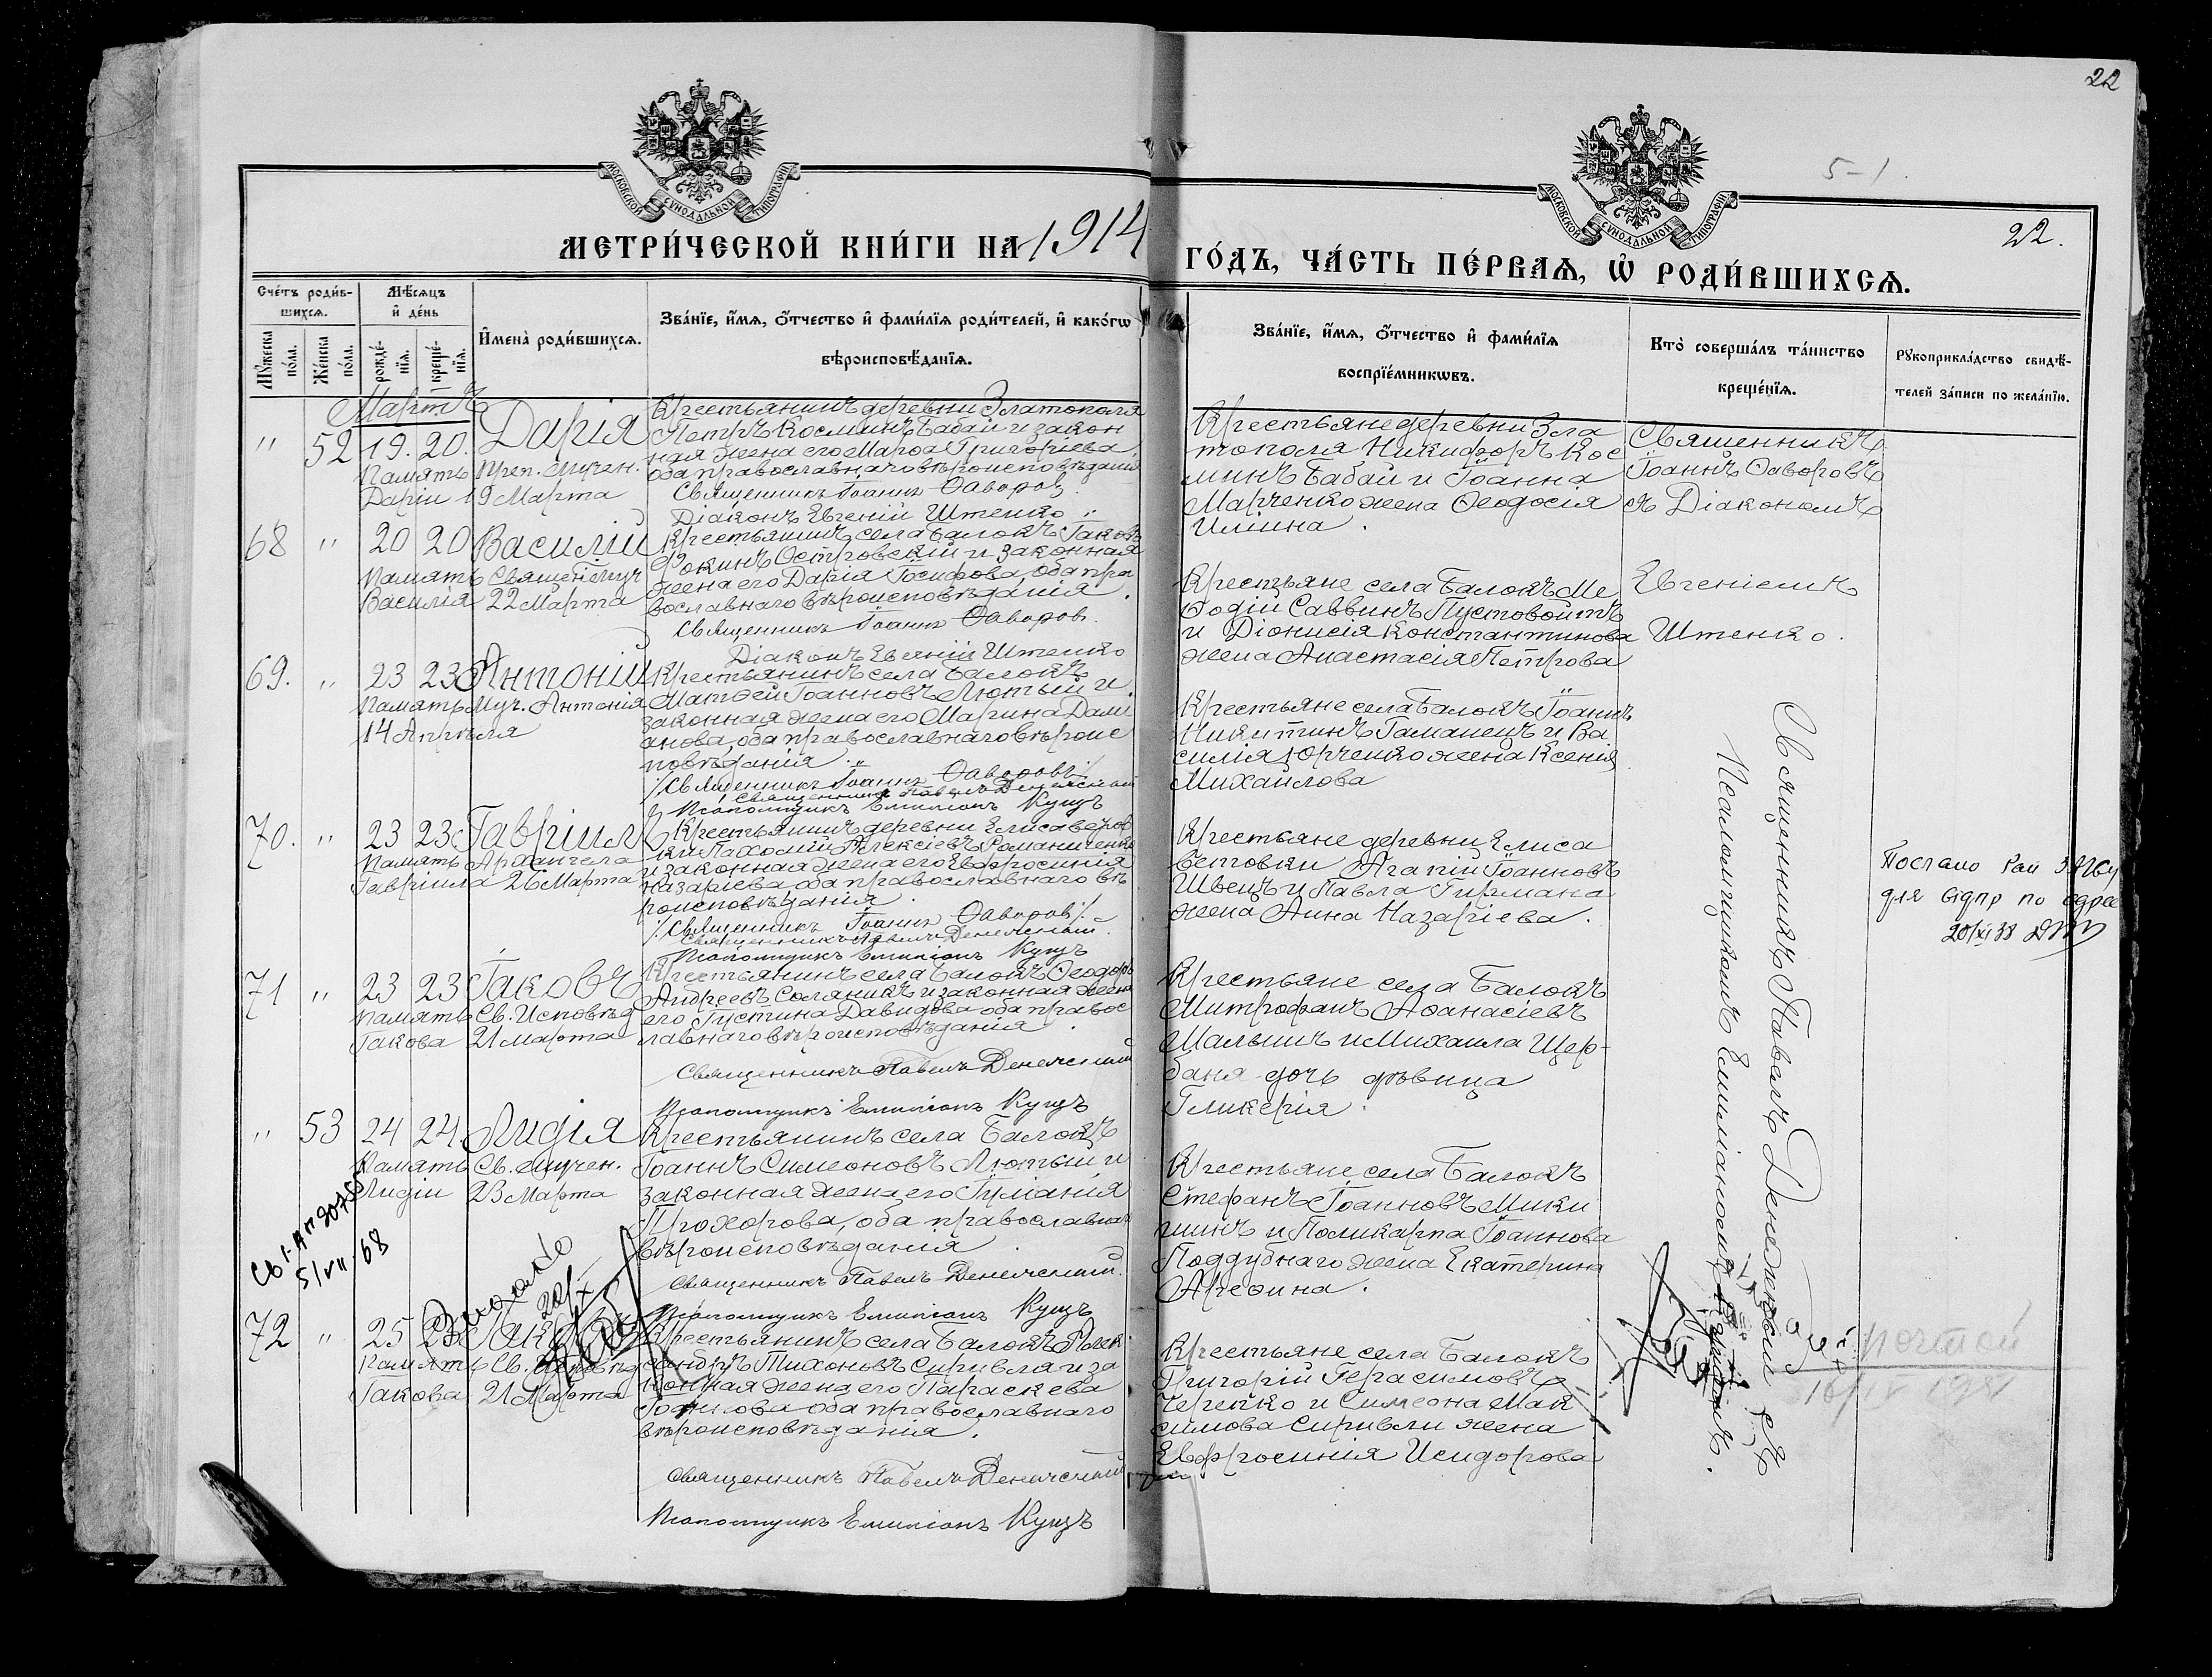 22
5-1
22.
МОСКОВСКОЙ СѴНОДАЛЬНОЙ ТИПОГРАФІИ
МОСКОВСКОЙ СѴНОДАЛЬНОЙ ТИПОГРАФІИ
МЕТРИ́ЧЕСКОЙ КНИ́ГИ НА 1914
ГО́ДЪ, ЧА́СТЬ ПЕ́РВАѦ, Ѽ РОДИ́ВШИХСѦ.
Сче́тъ роди́в-
шихсѧ.
Мꙋ́жеска
по́ла.
Же́нска
по́ла.
Мѣ́сѧцъ
и҆ де́нь
рожде́-
нїѧ.
креще́-
нїѧ.
И҆мена̀ роди́вшихсѧ.
Зва́нїе, и҆́мѧ, ѻ҆́тчество и҆ фами́лїѧ роди́телей, и҆ како́гѡ
вѣроисповѣ́данїѧ.
Зва́нїе, и҆́мѧ, ѻ҆́тчество и҆ фами́лїѧ
воспрїе́мникѡвъ.
Кто̀ соверша́лъ та́инство
креще́нїѧ.
Рꙋкоприкла́дство свидѣ́-
телей за́писи по жела́нїю.
Мартъ
" 52 19. 20. Дарія
Память Преп. мучен.
Даріи 19 Марта
Крестьянинъ деревни Златополя
Петръ Косминъ Бабай и закон
ная жена его Марѳа Григоріева,
оба православнаго вѣроисповѣданія
Священникъ Іоаннъ Ѳаворов
Діаконъ Евгеній Штенко
Крестьяне деревни Зла
тополя Никифоръ Кос
минъ Бабай и Іоанна
Марченко жена Ѳеодосія
Иліина.
Священникъ
Іоаннъ Ѳаворовъ
съ Діакономъ
Евгеніемъ
Штенко.
68 " 20 20 Василій
Память Священномуч
Василія 22 Марта
Крестьянинъ села Балокъ Іаковъ
Фокинъ Островскій и законная
жена его Дарія Іосифова, оба пра
вославнаго вѣроисповѣданія.
Священникъ Іоаннъ Ѳаворов.
Діаконъ Евгеній Штенко
Крестьяне села Балокъ Ме
ѳодій Саввинъ Пустовойтъ
и Діонисія Константинова
жена Анастасія Петрова
69. " 23 23 Антоній
Память Муч. Антонія
14 Апрѣля
Крестьянинъ села Балокъ
Матѳей Іоанновъ Лютый и
законная жена его Марина Дами
анова, оба православнаго вѣроис
повѣданія.
Священникъ Іоаннъ Ѳаворовъ
Священникъ Павелъ Денежный
Псаломщикъ Емиліанъ Кущъ
Крестьяне села Балокъ Іоаннъ
Никитинъ Гаманецъ и Ва
силія Юрченко жена Ксенія
Михайлова
70. " 23 23 Гавріилъ
Память Архангела
Гавріила 26 Марта
Крестьянинъ деревни Елисаветов
ки Пахомій Алексіевъ Романченко
и законная жена его Евфросинія
Назаріева, оба православнаго вѣ
роисповѣданія.
Священникъ Іоаннъ Ѳаворовъ
Священникъ Павелъ Денежный.
Псаломщикъ Емиліанъ Кущъ
Крестьяне деревни Елиса
ветовки Агапій Іоанновъ
Швецъ и Павла Гирмана
жена Анна Назаріева.
Послано
для по
20/XI 38
71 " 23 23 Іаковъ
Память Св. Исповѣд
Іакова 21 Марта
Крестьянинъ села Балокъ Ѳеодоръ
Андреевъ Соляникъ и законная жена
его Іустина Давидова оба правос
лавнаго вѣроисповѣданія.
Священникъ Павелъ Денежный
Псаломщикъ Емиліанъ Кущъ
Крестьяне села Балокъ
Митрофанъ Аѳанасіевъ
Шальинъ и Михаила Щер-
баня дочь дѣвица
Гликерія.
" 53 24 24 Лидія
Память Св. мучен.
Лидіи 23 Марта
Крестьянинъ села Балокъ
Іоаннъ Симеоновъ Лютый и
законная жена его Іуліанія
Прохорова, оба православнаго
вѣроисповѣданія
Священникъ Павелъ Денежный.
Псаломщикъ Емиліанъ Кущъ
Крестьяне села Балокъ
Стефанъ Іоанновъ Мики
шинъ и Поликарпа Іоаннова
Поддубнаго жена Екатерина
Арефина.
5/VII-68
72 " 25 25 Іаковъ
Память Св. Исповѣд
Іакова 21 Марта
Крестьянинъ села Балокъ Алек
сандръ Тихоновъ Сиривля и за
конная жена его Параскева
Іоаннова оба православнаго
вѣроисповѣданія.
Священникъ Павелъ Денежный
Псаломщикъ Емиліанъ Кущъ
Крестьяне села Балокъ
Григорій Герасимовъ
Черейко и Симеона Мак
симова Сиривли жена
Евфросинія Исидорова
Священникъ Павелъ Денежный съ
Псаломщикомъ Емиліаномъ
почтой